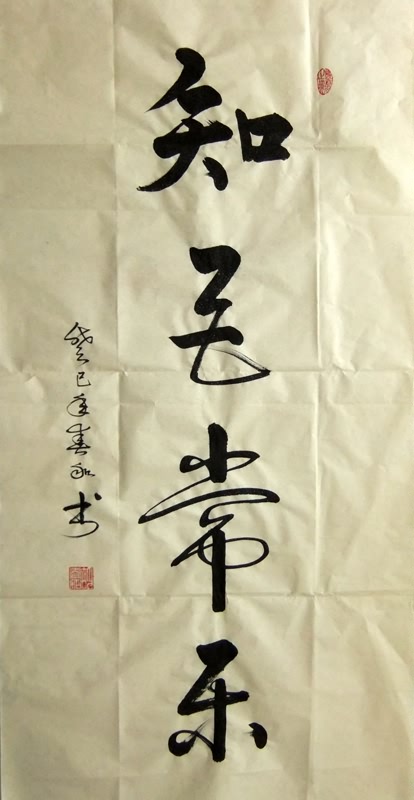 知足常乐
癸巳年春书